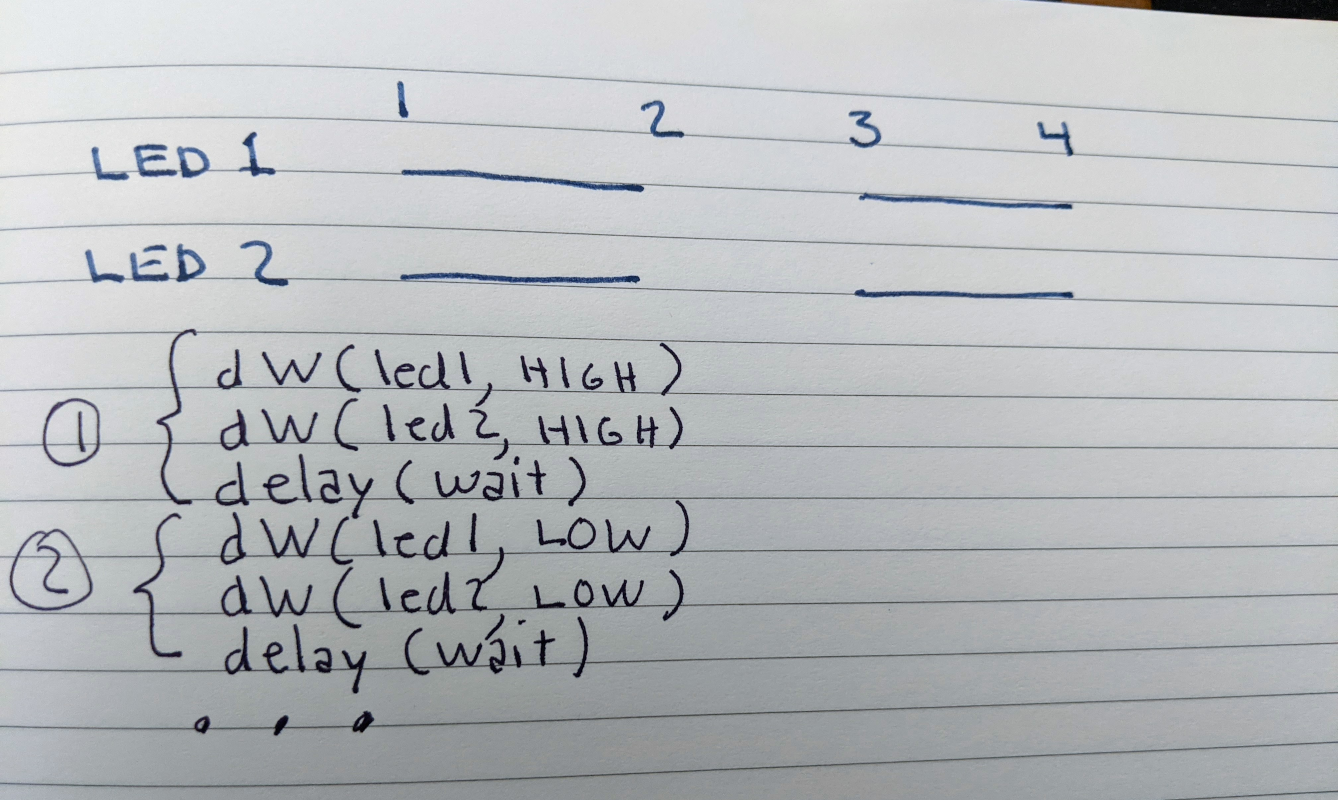 1 2 3 4
LED 1
LED 2
① dW(led1, HIGH)
dW(led2, HIGH)
delay(wait)
② dW(led1, LOW)
dW(led2, LOW)
delay(wait)
...